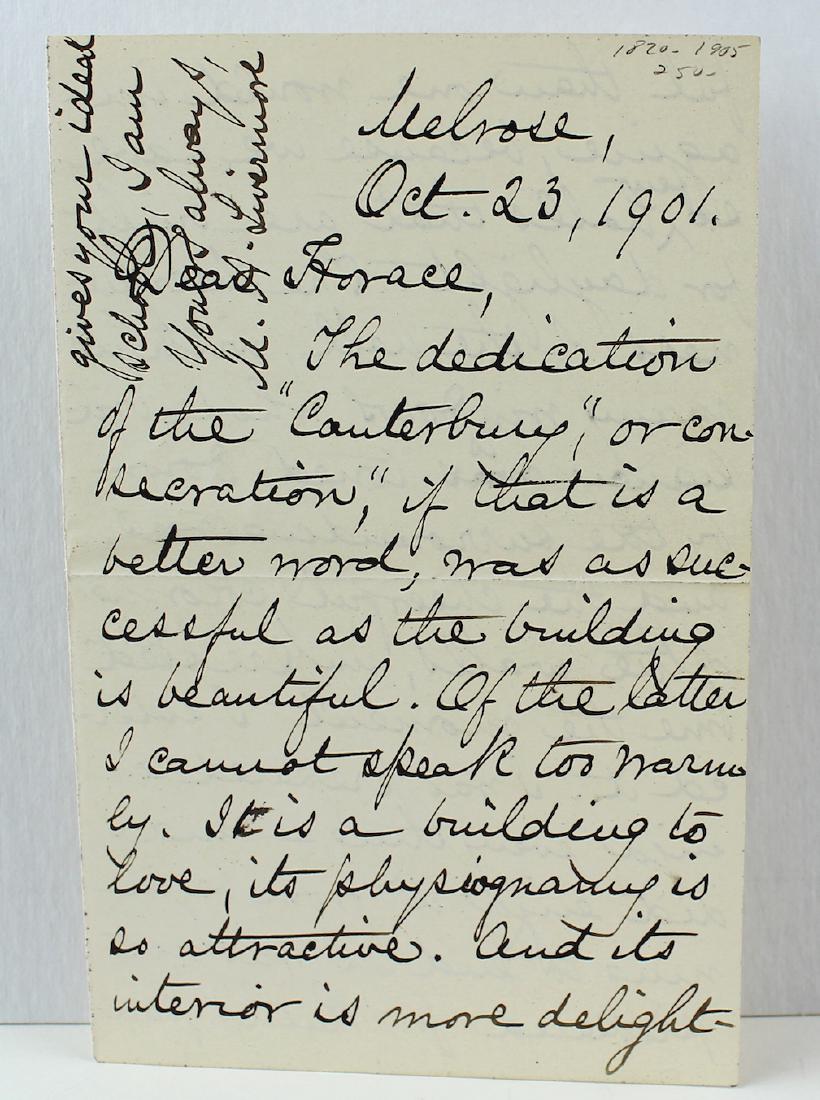 1820-1905
250-
Melrose,
Oct. 23, 1901.
Dear Horace,
The dedication
of the "Canterbury," or con-
secration," if that is a
better word, was as suc-
cessful as the building
is beautiful. Of the latter
I cannot speak too warm-
ly. It is a building to
love, its physiognamy is
so attractive. And its
interior is more delight-
gives your ideal
school, I am
Yours always,
M. A. Livermore